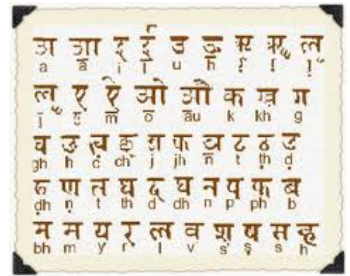 अ आ इ ई उ ऊ ऋ ॠ ऌ
a ā i ī u
ॡ ए ऐ ओ औ क ख ग
ō āu k kh g
घ ङ च छ ज झ ञ ट ठ ड
gh h c ch j jh ñ t ṭh ḍ
ढ ण त थ द ध न प फ ब
ḍh ṇ t th d dh n p ph b
भ म य र ल व श ष स ह
bh m y r l v ś ṣ s h